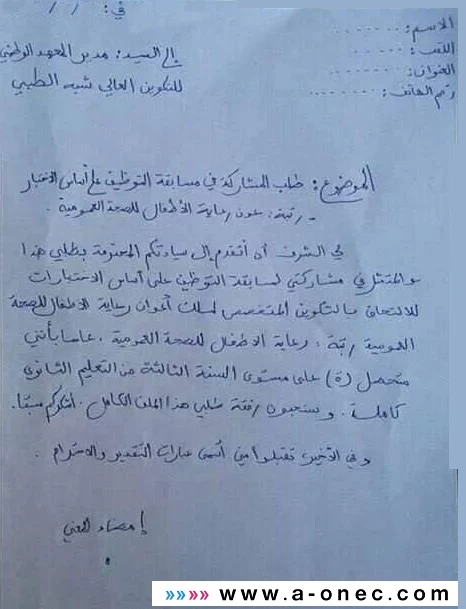 في: / /
الاسم: .......
اللقب: .......
العنوان: .......
رقم الهاتف: .......
إلى السيد: مدير المعهد الوطني
للتكوين العالي شبه الطبي
الموضوع: طلب المشاركة في مسابقة التوظيف على أساس الاختبار
- رتبة: عون رعاية الأطفال للصحة العمومية.
لي الشرف أن أتقدم إلى سيادتكم المحترمة بطلبي هذا
والمتمثل في مشاركتي لمسابقة التوظيف على أساس الاختبارات
للالتحاق بالتكوين المتخصص لسلك أعوان رعاية الأطفال للصحة
العمومية رتبة: رعاية الأطفال للصحة العمومية، علما بأنني
متحصل (ة) على مستوى السنة الثالثة من التعليم الثانوي
كاملة. وستجدون رفقة طلبي هذا الملف الكامل. أشكركم مسبقا.
وفي الأخير تقبلوا مني أسمى عبارات التقدير والاحترام.
إمضاء المعني
»»»» www.a-onec.com